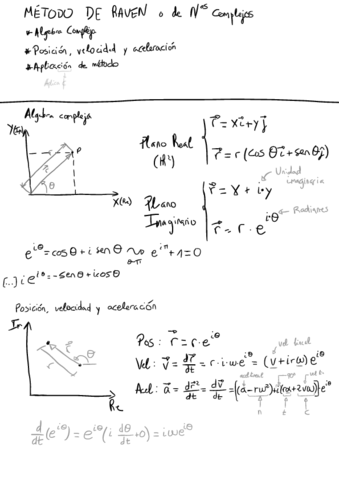 MÉTODO DE RAVEN o de Nos Complejos
* Álgebra Compleja
* Posición, velocidad y aceleración
* Aplicación de método
Álgebra compleja
Y(Im)
P
r
θ
X(Re)
Plano Real (ℝ²)
r⃗ = xi⃗ + yj⃗
r⃗ = r(cos θi⃗ + sen θj⃗)
Plano Imaginario
Unidad imaginaria
r⃗ = x + i·y
r⃗ = r·e^{iθ} ← Radianes
e^{iθ} = cosθ + i senθ ⟿ e^{iπ} + 1 = 0
θ=π
[...] i e^{iθ} = -senθ + i cosθ
Posición, velocidad y aceleración
Im
r
θ
Re
Pos: r⃗ = r·e^{iθ}
vel lineal
Vel: v⃗ = dr⃗/dt = r·i·w e^{iθ} = (v + irω) e^{iθ}
Acel: a⃗ = dr⃗²/dt = dv⃗/dt = [(a - rω²) + i(rα + 2vω)] e^{iθ}
n t c
d/dt (e^{iθ}) = e^{iθ} (i dθ/dt + 0) = iωe^{iθ}